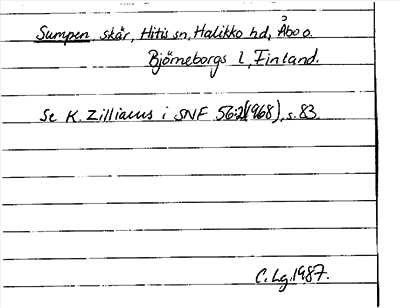 Sumpen skär, Hitis sn, Halikko hd, Åbo o.
Björneborgs l, Finland.
Se K. Zilliacus i SNF 56:2(1968), s. 83.
C. Lg. 1987.